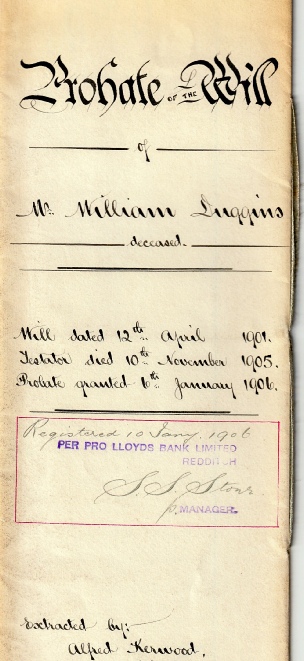 Probate OF THE Will
of
Mr. William Luggins
deceased.
Will dated 12th April 1901.
Testator died 10th November 1905.
Probate granted 6th January 1906.
Registered 10 Jany. 1906
PER PRO LLOYDS BANK LIMITED
REDDITCH
S.S. Stone
p. MANAGER.
Extracted by:-
Alfred Kerwood,